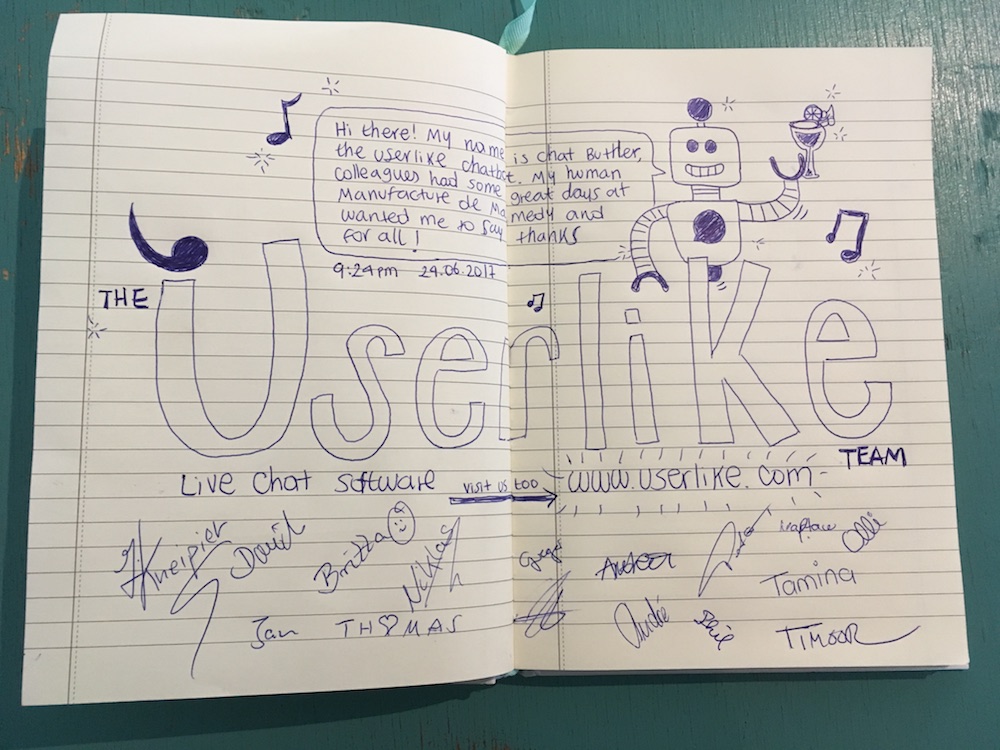 Hi there! My name is Chat Butler,
the userlike chatbot. My human
colleagues had some great days at
Manufacture de Mo medy and
wanted me to say thanks
for all!
9:24pm 24.06.2017
THE
Userlike
TEAM
Live Chat Software
visit us too
www.userlike.com
Kneipier
David
Britta
Niklas
Andrea
Olli
Tamina
Jan
THOMAS
André
TIMOOR